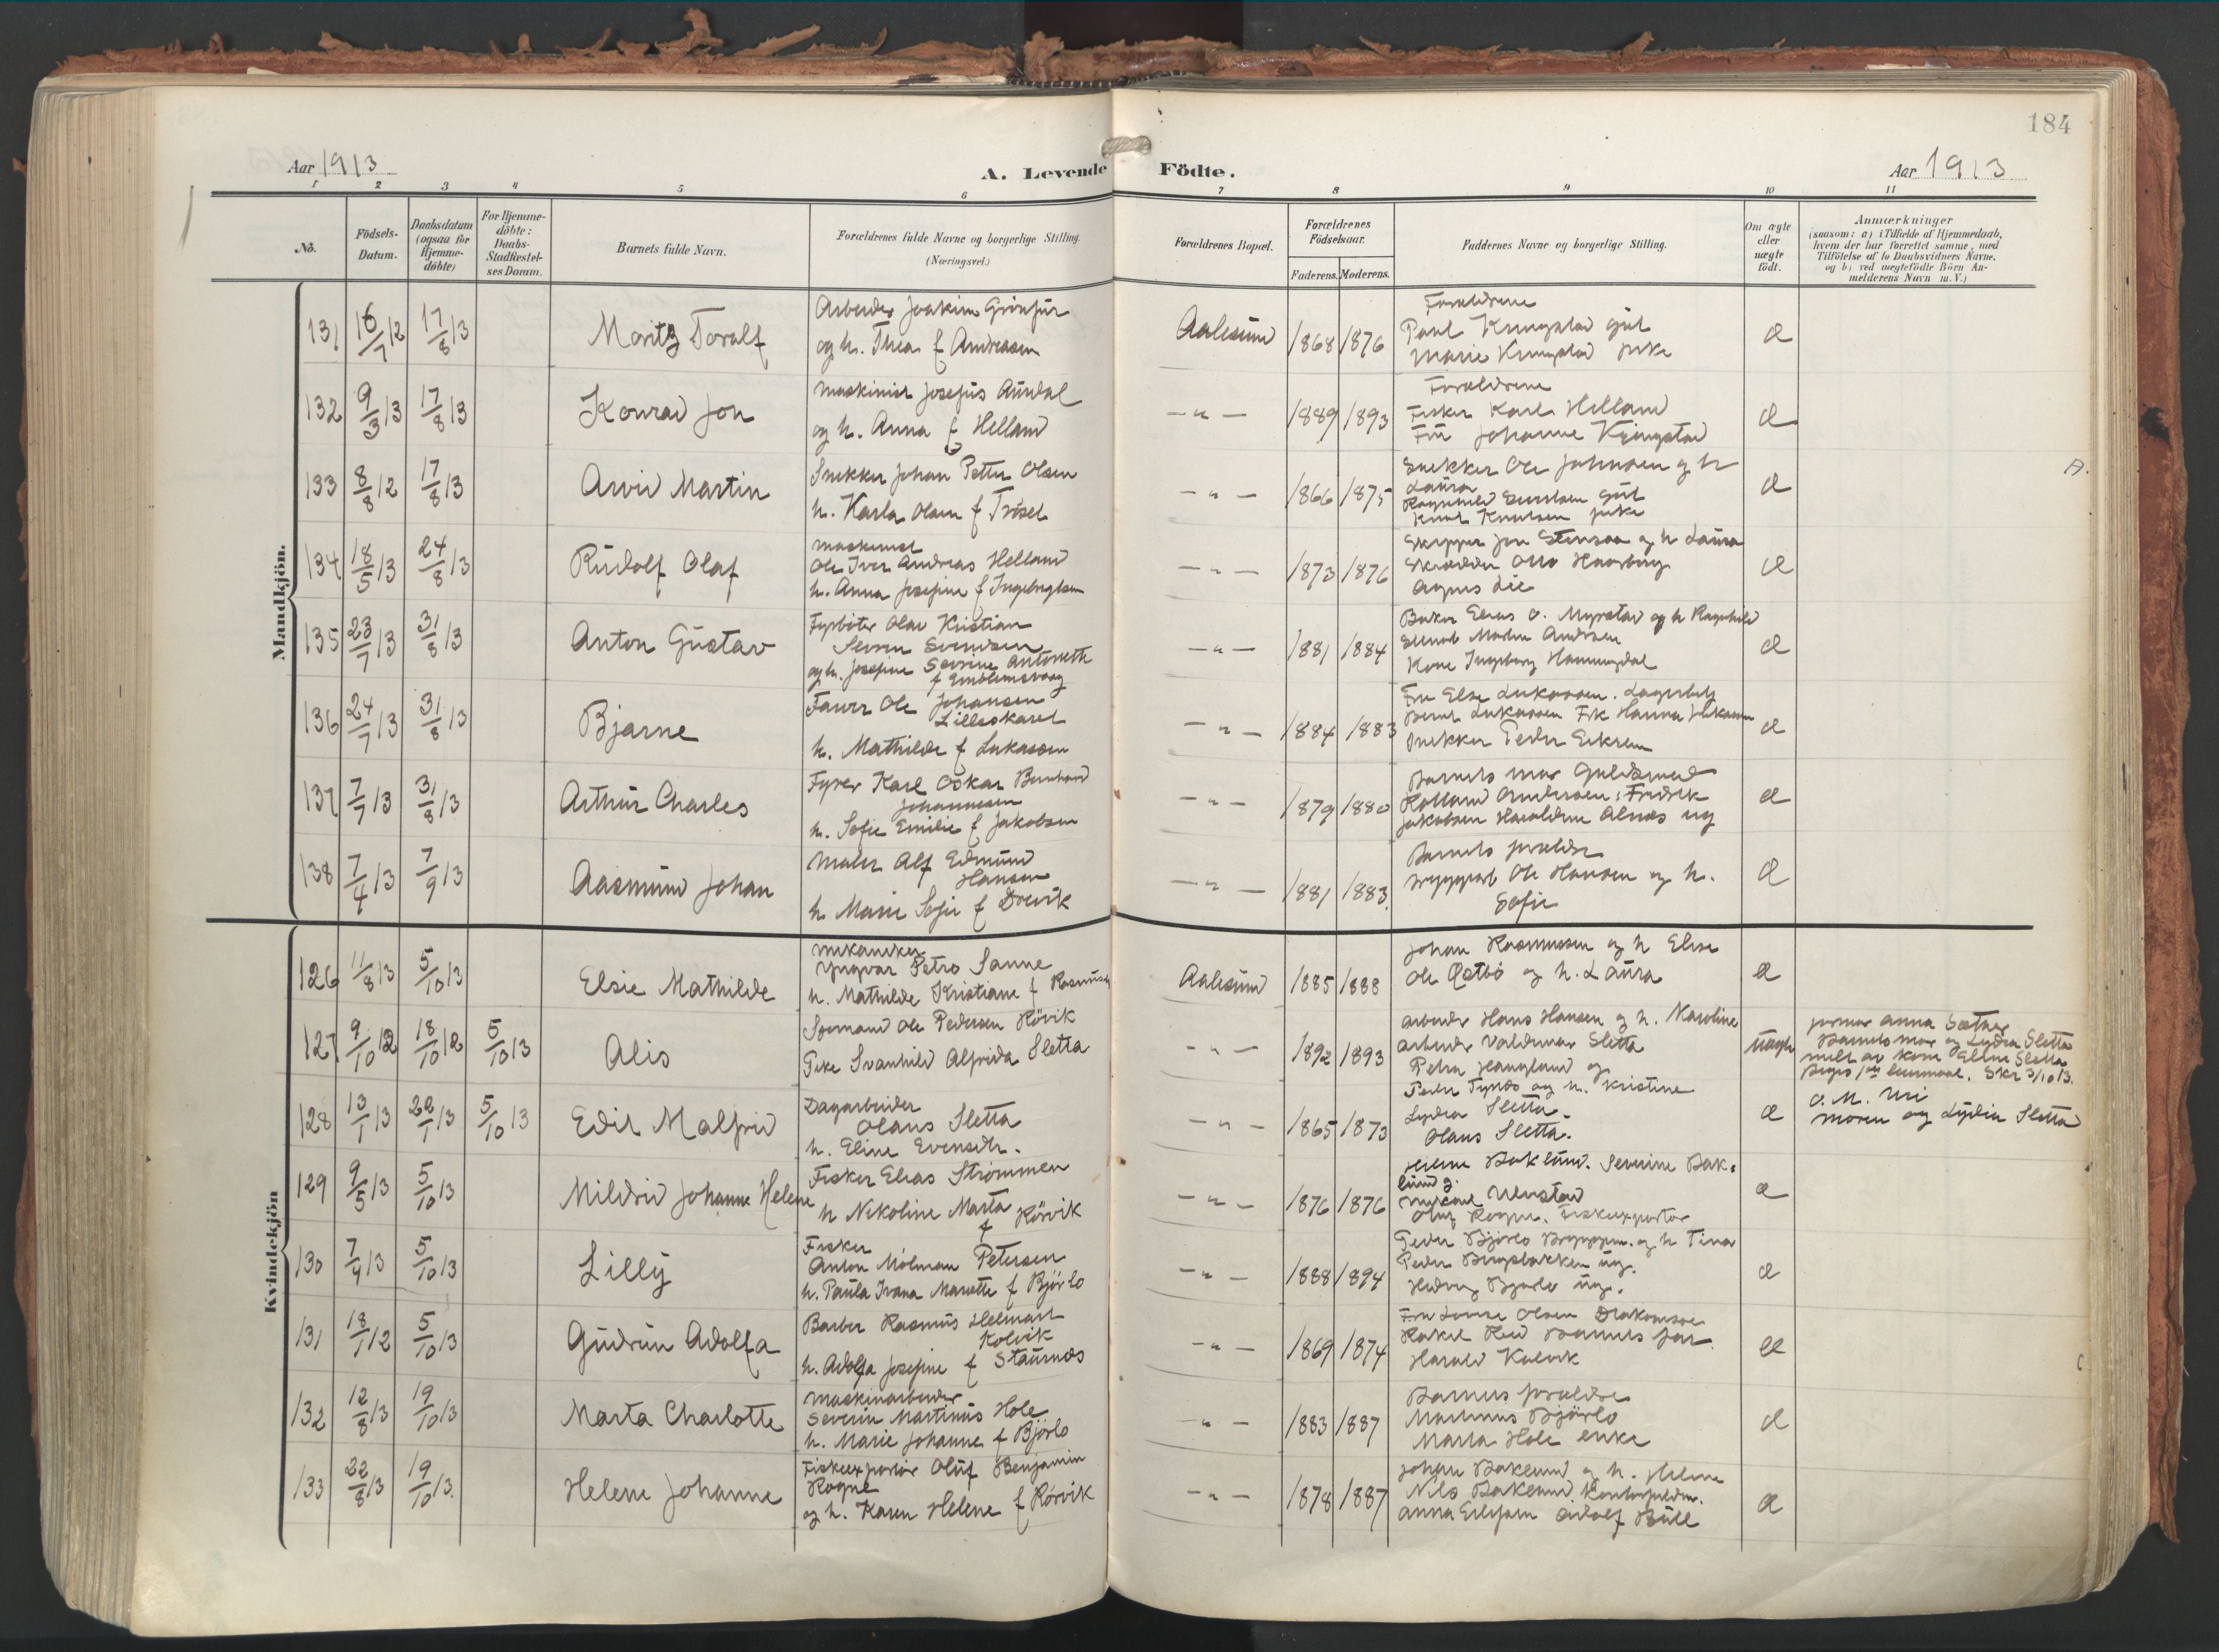 184
Aar 1913
A. Levende Födte.
Aar 1913
1 2 3 4 5 6 7 8 9 10 11
No.
Födsels-Datum.
Daabsdatum (ogsaa for Hjemme-döbte)
For Hjemme-döbte: Daabs-Stadfæstel-ses Datum.
Barnets fulde Navn.
Forældrenes fulde Navne og borgerlige Stilling. (Næringsvei.)
Forældrenes Bopæl.
Forældrenes Födselsaar.
Faderens. Moderens.
Faddernes Navne og borgerlige Stilling.
Om ægte eller uægte födt.
Anmærkninger
(saasom: a) i Tilfælde af Hjemmedaab,
hvem der har forrettet samme, med
Tilföielse af to Daabsvidners Navne.
og b) ved uægtefödte Börn An-
melderens Navn m.V.)
Mandkjön.
131 16/7 12 17/8 13 Moritz Toralf
Arbeider Joakim
og h. Thea f Andreasen
Aalesund 1868 1876
Forældrene
Paul Kringstad gut
Marie Kringstad pike
æ
132 9/3 13 17/8 13 Konrad Jon
Maskinist Josefus Aurdal
og h. Anna f Helland
-"- 1889 1893
Forældrene
Fisker Karl Helland
Fru Johanne Kringstad
æ
133 8/8 12 17/8 13 Arvid Martin
Snekker Johan Petter Olsen
h. Karla Olsen f
-"- 1866 1875
Snekker Ole Johnsen og h
Laura
Knut Knutsen
æ
134 18/5 13 24/8 13 Rudolf Olaf
Maskinist
Ole Iver Andreas Helland
h. Anna Josefine f Ingebrigtsen
-"- 1873 1876
Skipper Jon og h Laura
Skræder Otto
Agnes Lie
æ
135 23/7 13 31/8 13 Anton Gustav
Fyrböter Olav Kristian
Severin Svendsen
og h. Josefine Severine Antonette
f Emblemsvaag
-"- 1881 1884
Baker Elias O. Myrstad og h Ragnhild
Martin Andersen
Kone Ingeborg
æ
136 24/7 13 31/8 13 Bjarne
Farver Ole Johansen
Lilleskaret
h. Mathilde f Lukassen
-"- 1884 1883
Fru Else Lukassen.
Bernt Lukassen Frk Hanna
Snekker Peder Eikrem
æ
137 7/7 13 31/8 13 Arthur Charles
Fyrer Karl Oskar Bernhard
Johannesen
h. Sofie Emilie f Jakobsen
-"- 1879 1880
Barnets mor Guldsmed
Andersen, Fredrik
Jakobsen Haraldine Alnæs ug
æ
138 7/4 13 7/9 13 Aasmund Johan
Maler Alf Edmund
Hansen
h. Marie Sofie f
-"- 1881 1883.
Barnets forældre
Ole Hansen og h.
Sofie
æ
Kvindekjön
126 11/8 13 5/10 13 Elsie Mathilde
Mekaniker
Yngvar Petro Sanne
h. Mathilde Kristiane f
Aalesund 1885 1888
Johan Rasmussen og h Elise
Ole og h. Laura
æ
127 9/10 12 18/10 12 5/10 13 Alis
Sjömand Ole Pedersen Rövik
Pike Svanhild Alfrida Sletta
-"- 1892 1893
Arbeider Hans Hansen og h. Karoline
Arbeider Valdemar Sletta
Petra Haugland og
Peder og h. Kristine
uægte
jormor Anna Sætner
Barnets mor og Lydia Sletta
melt av kone Eline Sletta
Skr 3/10 13.
128 13/1 13 22/1 13 5/10 13 Edit Malfrid
Dagarbeider
Olaus Sletta
h. Eline Evensdtr.
-"- 1865 1873
Lydia Sletta.
Olaus Sletta.
æ
O. M. Uri
Moren og Lydia Sletta
129 9/5 13 5/10 13 Mildrid Johanne Helene
Fisker Elias Strömmen
h Nikoline Marta
f Rörvik
-"- 1876 1876
Helene Baklund. Severine Bak-
lund g.
Oluf Rogne. Fiskeexportör
æ
130 7/4 13 5/10 13 Lilly
Fisker
Anton Molman Petersen
h. Paula Ivana f Björlo
-"- 1888 1894
Peder Björlo og h Tina
Peder ug.
Hedvig Björlo ug.
æ
131 18/1 12 5/10 13 Gudrun Adolfa
Barber Rasmus Helmart
Kolvik
h. Adolfa Josefine f Staurnes
-"- 1869 1874
Fru Louise Olsen
Barnets far.
Harald Kolvik
æ
132 12/8 13 19/10 13 Marta Charlotte
Maskinarbeider
Severin Martinus Hole
h. Marie Johanne f Björlo
-"- 1883 1887
Barnets forældre
Martinus Björlo
Marta Hole enke
æ
133 22/8 13 19/10 13. Helene Johanne
Fiskeexportör Oluf Benjamin
Rogne
og h. Karen Helene f Rörvik
-"- 1878 1887
Johan Baklund og h. Helene
Nils Baklund
Anna Adolf Bull
æ